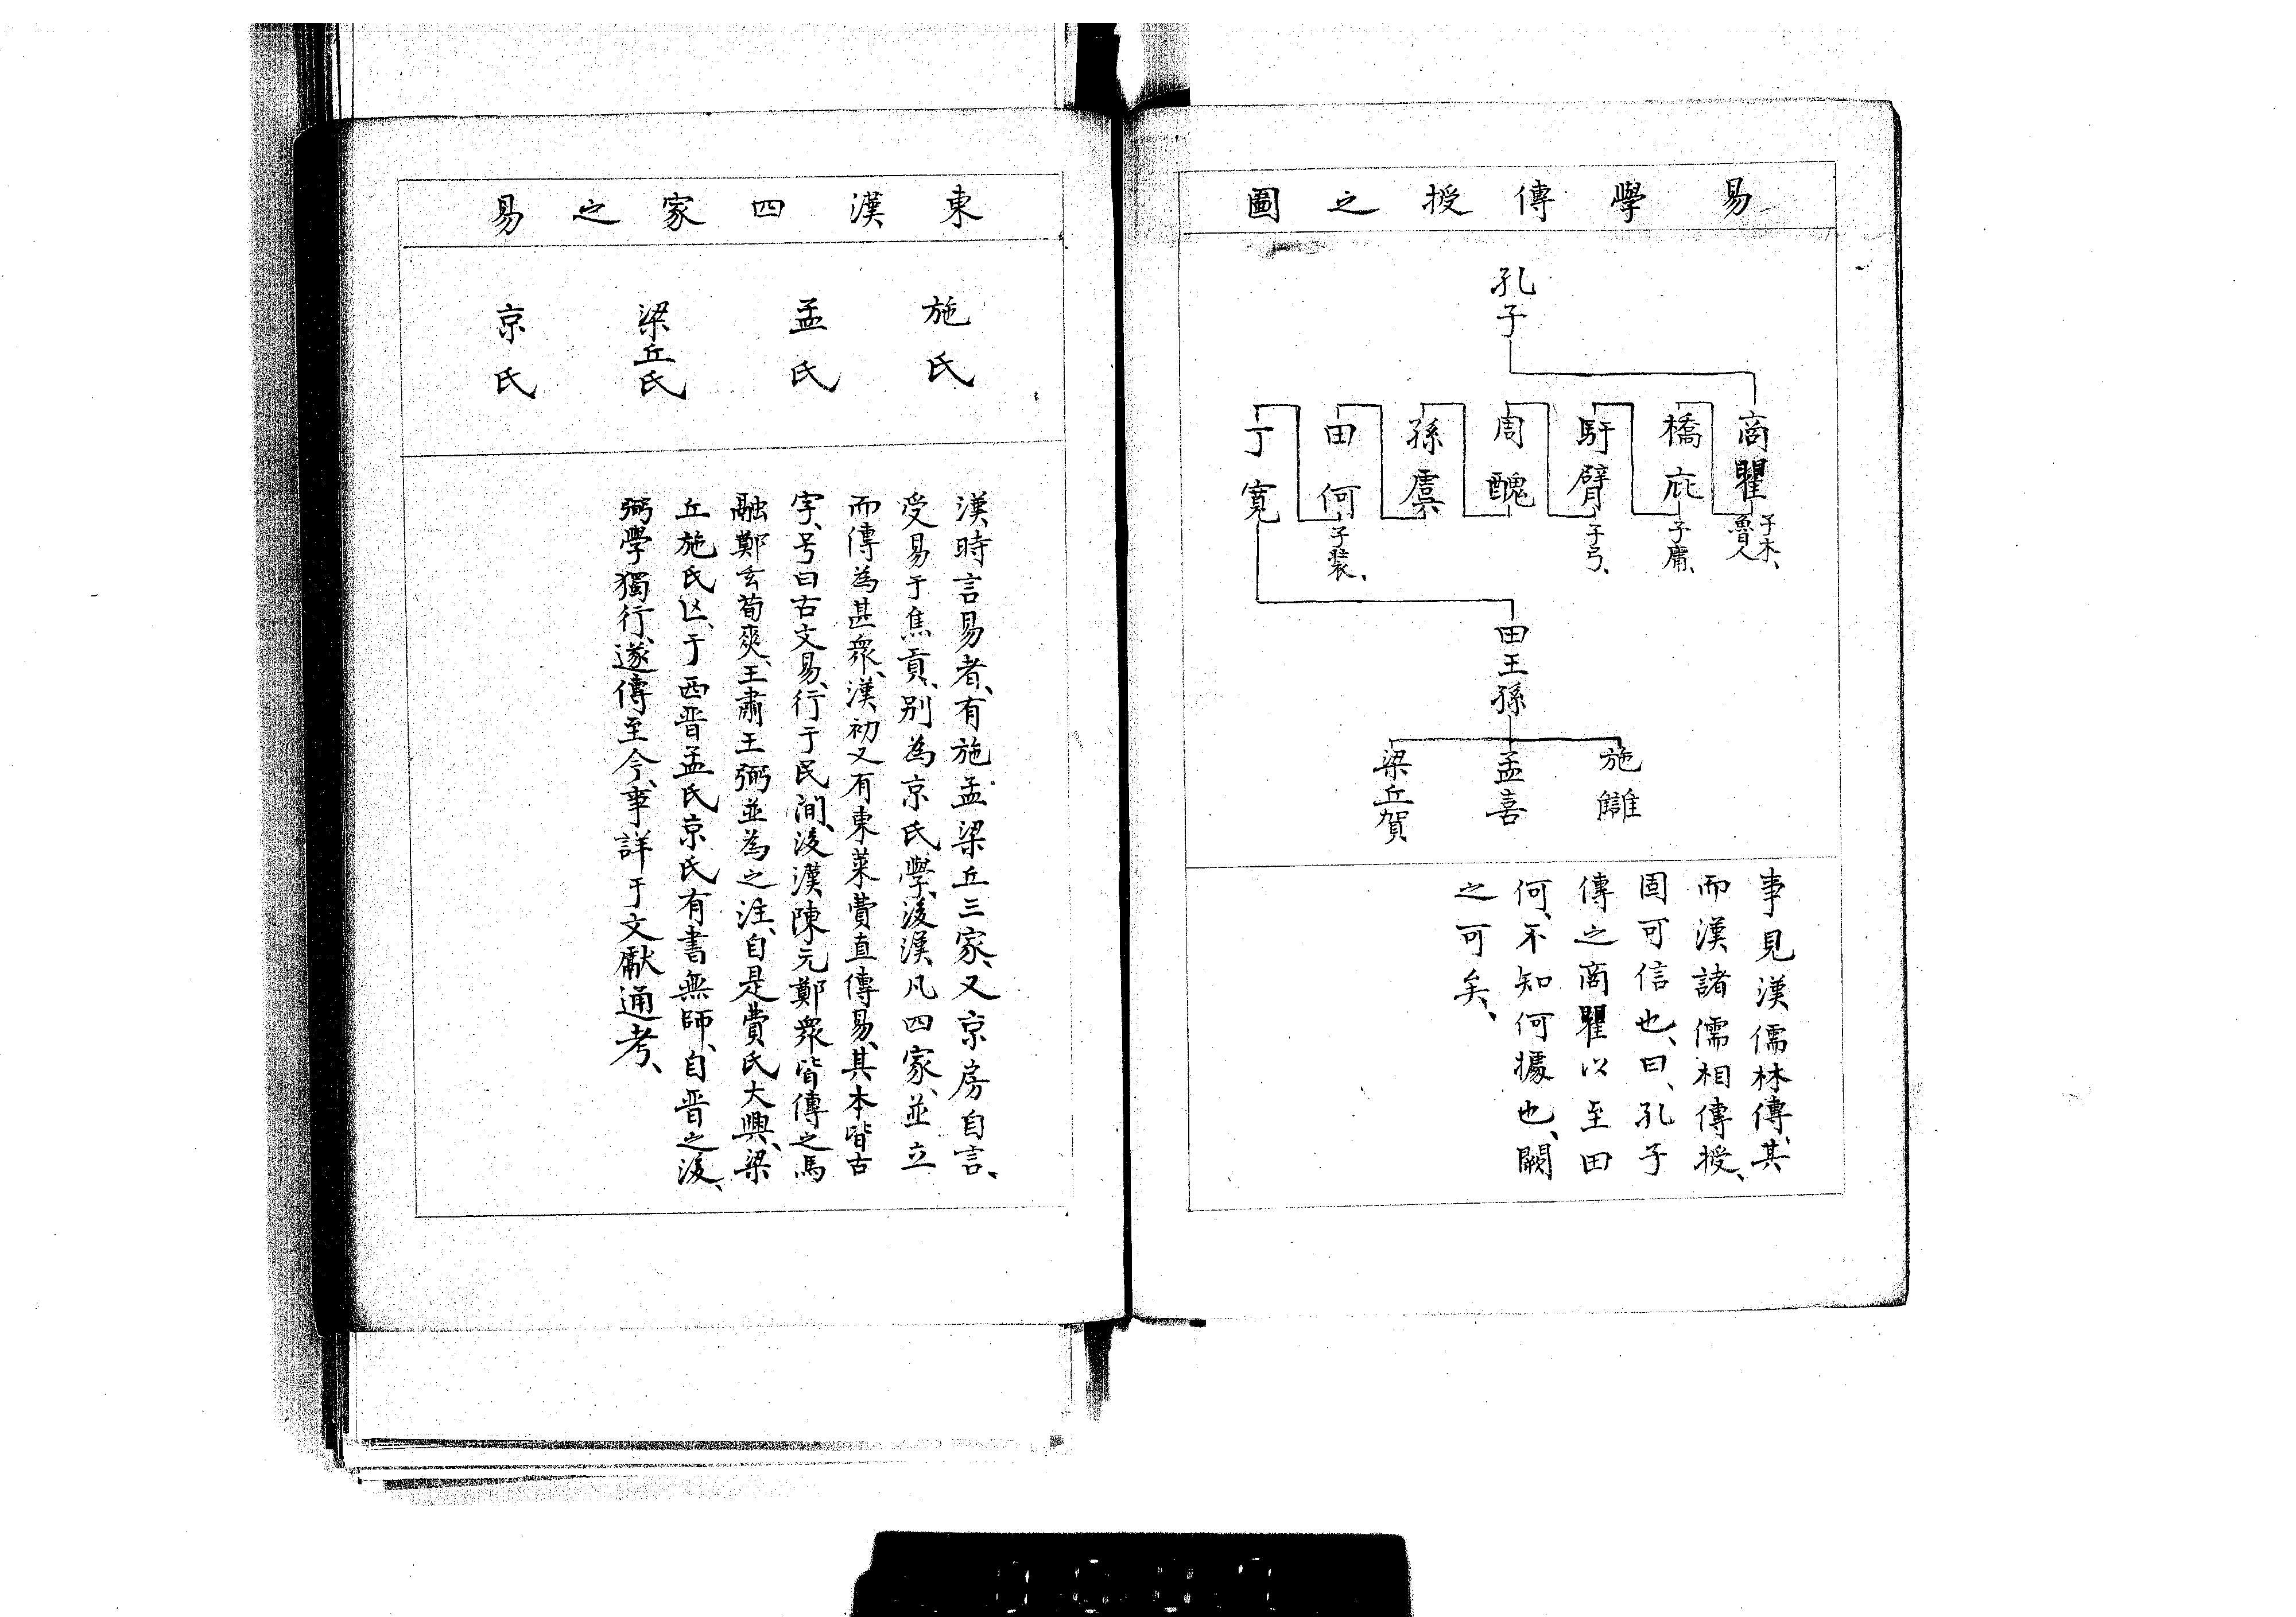 易學傳授之圖
孔子
商瞿
子木、
魯人
橋庇
子庸、
馯臂
子弓、
周醜
孫虞
田何
子裝、
丁寬
田王孫
施讎
孟喜
梁丘賀
事見漢儒林傳、其
而漢諸儒相傳授、
固可信也、曰、孔子
傳之商瞿以至田
何、不知何據也、闕
之可矣、
東漢四家之易
施氏
孟氏
梁丘氏
京氏
漢時言易者、有施孟梁丘三家、又京房自言、
受易于焦貢、別為京氏學、後漢、凡四家、並立
而傳為甚衆、漢初又有東萊費直傳易、其本皆古
字、号曰古文易、行于民間、後漢陳元鄭衆皆傳之馬
融鄭玄荀爽、王肅王弼並為之注、自是費氏大興、梁
丘施氏亡、于西晋孟氏京氏有書無師、自晋之後、
弼學獨行、遂傳至今、事詳于文獻通考、